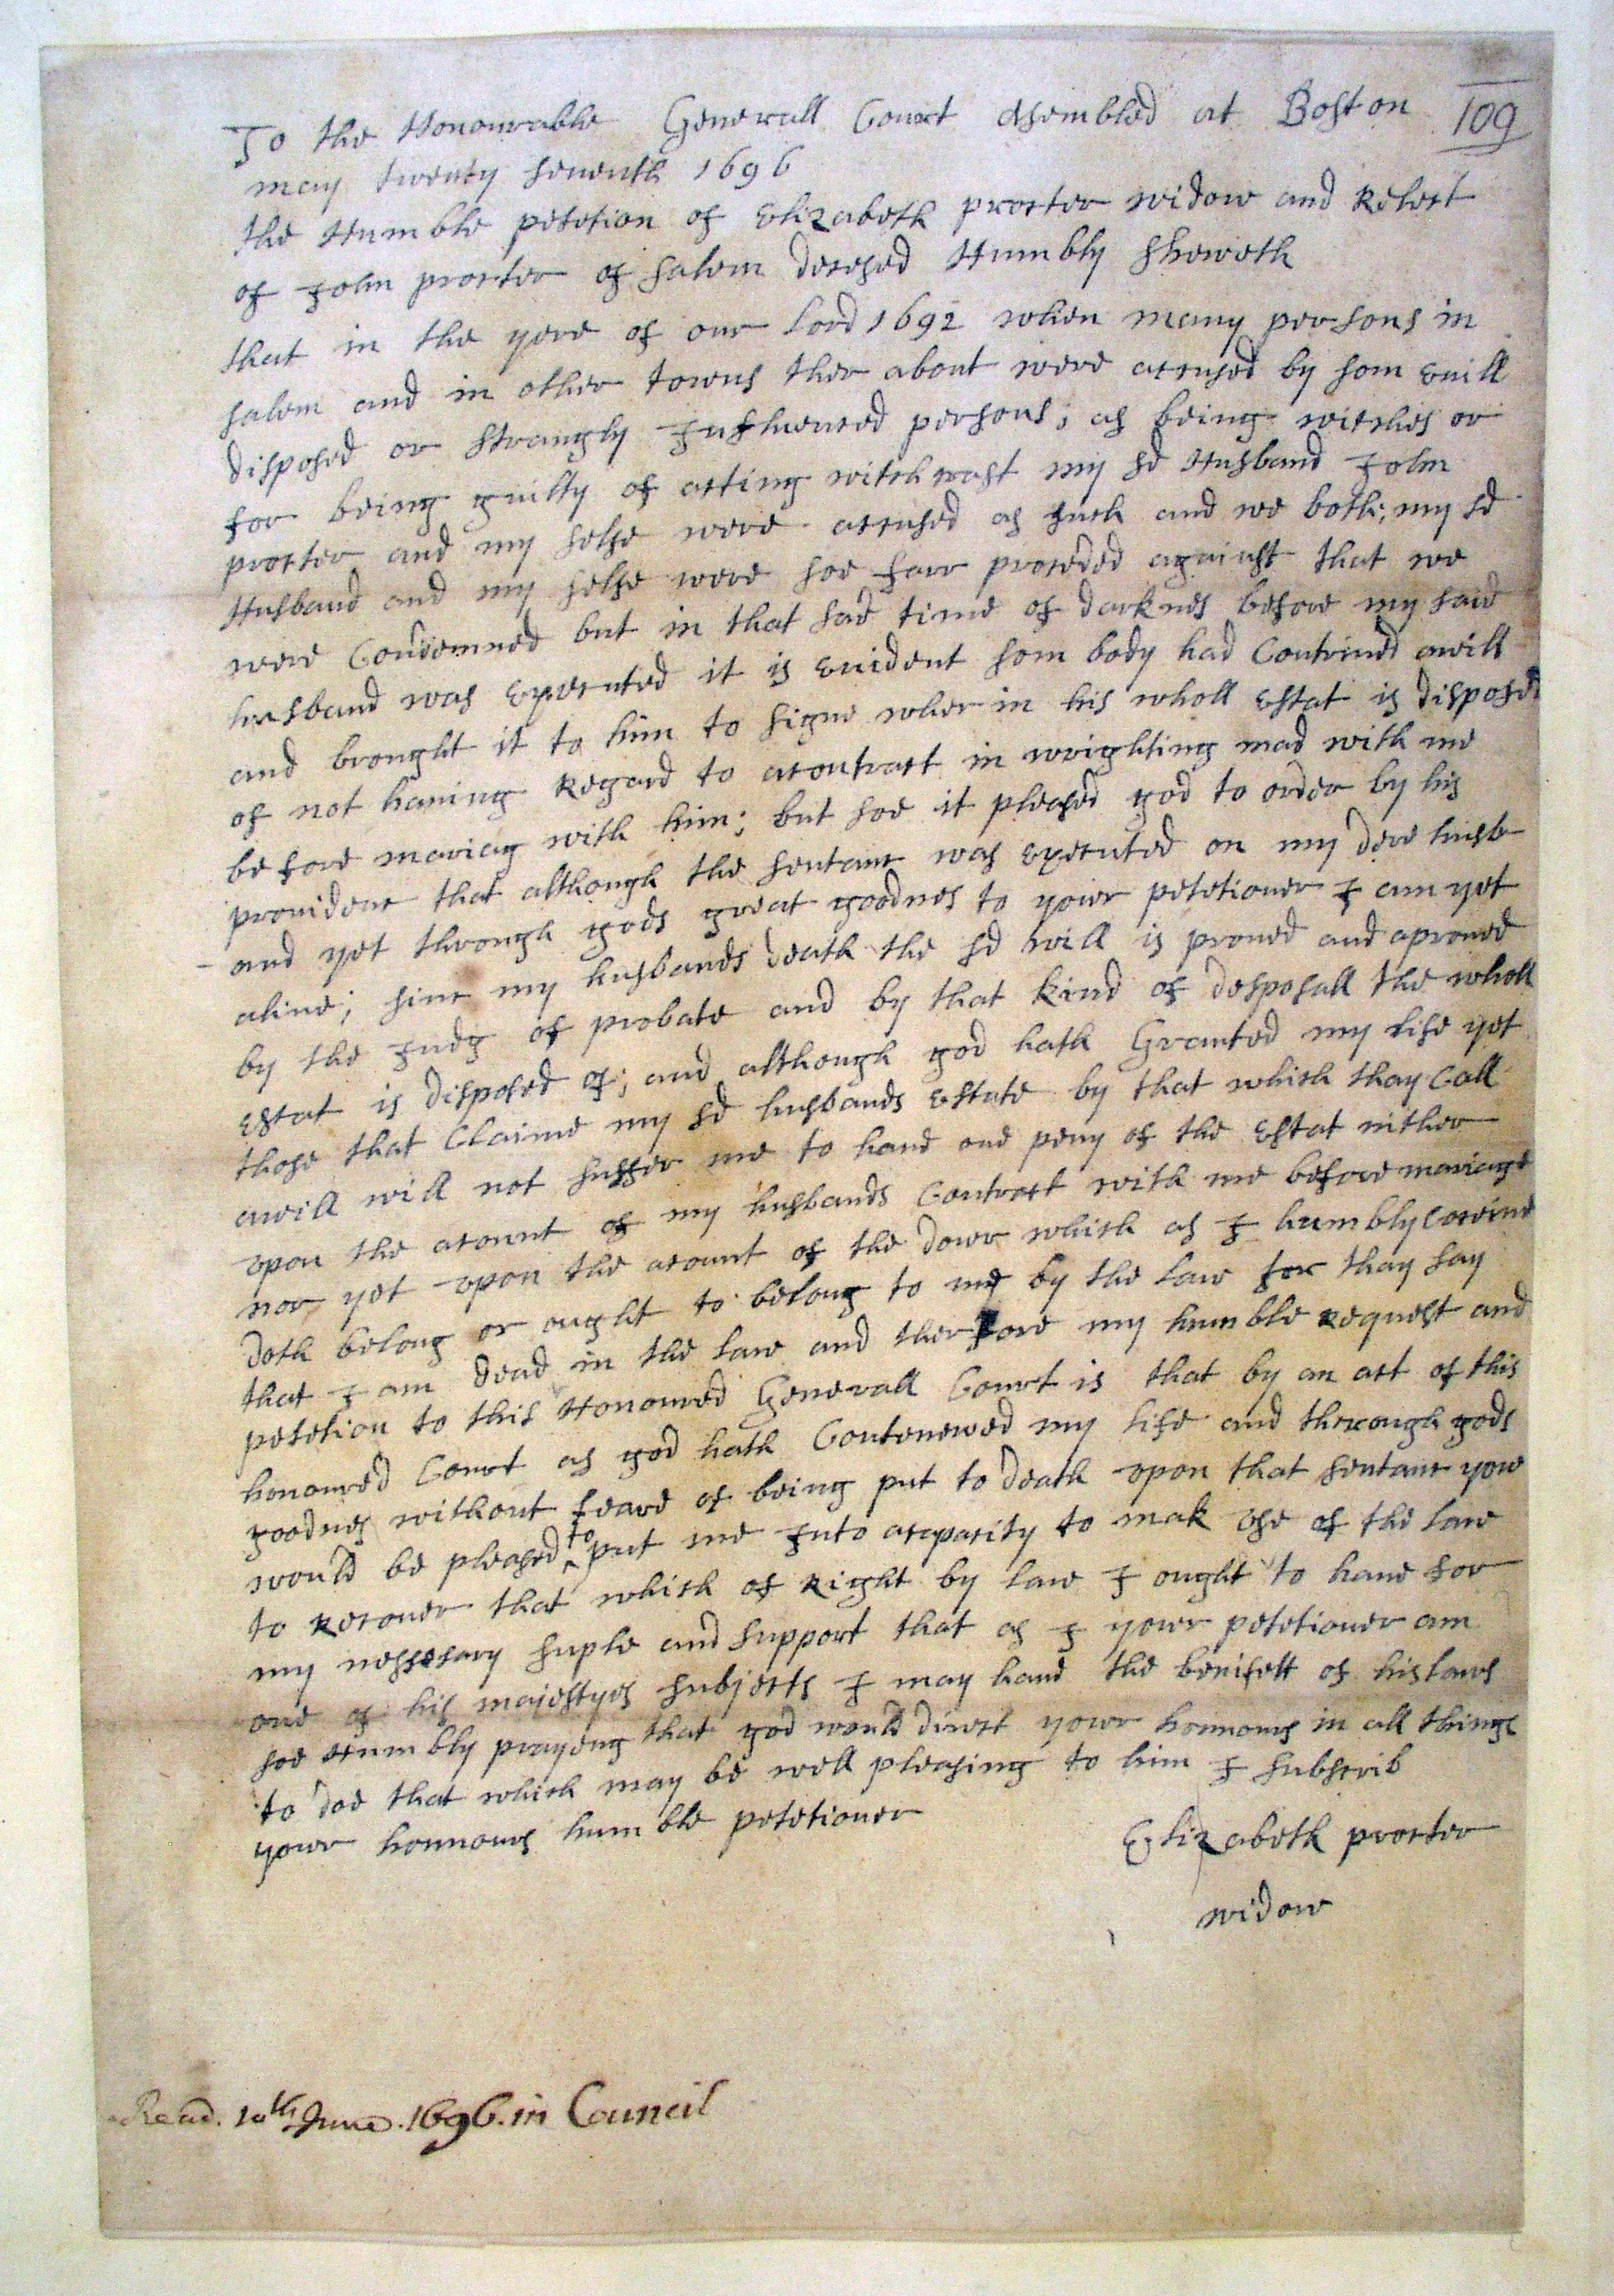 To the Honourable Generall Court asembled at Boston 109
may twenty seuenth 1696
the Humble petetion of Elizabeth procter widow and Relect
of John procter of salem decesed Humbly sheweth
that in the yere of our lord 1692 when many persons in
salem and in other towns ther about were accused by som euill
disposed or strangly Influenced persons, as being witches or
for being guilty of acting witchcraft my sd Husband John
procter and my selfe were accused as such and we both; my sd
Husband and my selfe were soe farr proceded against that we
were Condemned but in that sad time of darknes before my said
husband was executed it is evident som body had Contriued awill
and brought it to him to signe wher in his wholl estat is disposed
of not hauing Regard to acontract in wrighting mad with me
before mariag with him; but soe it pleased god to order by his
prouidenc that although the sentanc was executed on my dere husb
and yet through gods great goodnes to your petetioner I am yet
aliue; sinc my husbands death the sd will is proued and aproued
by the Judg of probate and by that kind of desposall the wholl
estat is disposed of; and although god hath Granted my life yet
those that Claime my sd husbands estate by that which thay Call
awill will not suffer me to haue one peny of the Estat nither
upon the acount of my husbands Contract with me before mariage
nor yet upon the acount of the dowr which as I humbly conceiue
doth belong or ought to belong to me by the law for thay say
that I am dead in the law and therfore my humble Request and
petetion to this Honoured Generall Court is that by an act of this
honoured Court as god hath Contenewed my life and through gods
goodnes without feare of being put to death upon that sentanc yow
would be pleased to put me Into acapacity to mak use of the law
to Recouer that which of Right by law I ought to haue for
my nessesary suple and support that as I your petetioner am
one of his majestyes subjects I may haue the benifett of his laws
soe Humbly prayeng that god would direct your honnours in all things
to doe that which may be well pleasing to him I subscrib
your honnours humble petetioner
Elizabeth procter
widow
Read. 10th June. 1696. in Council